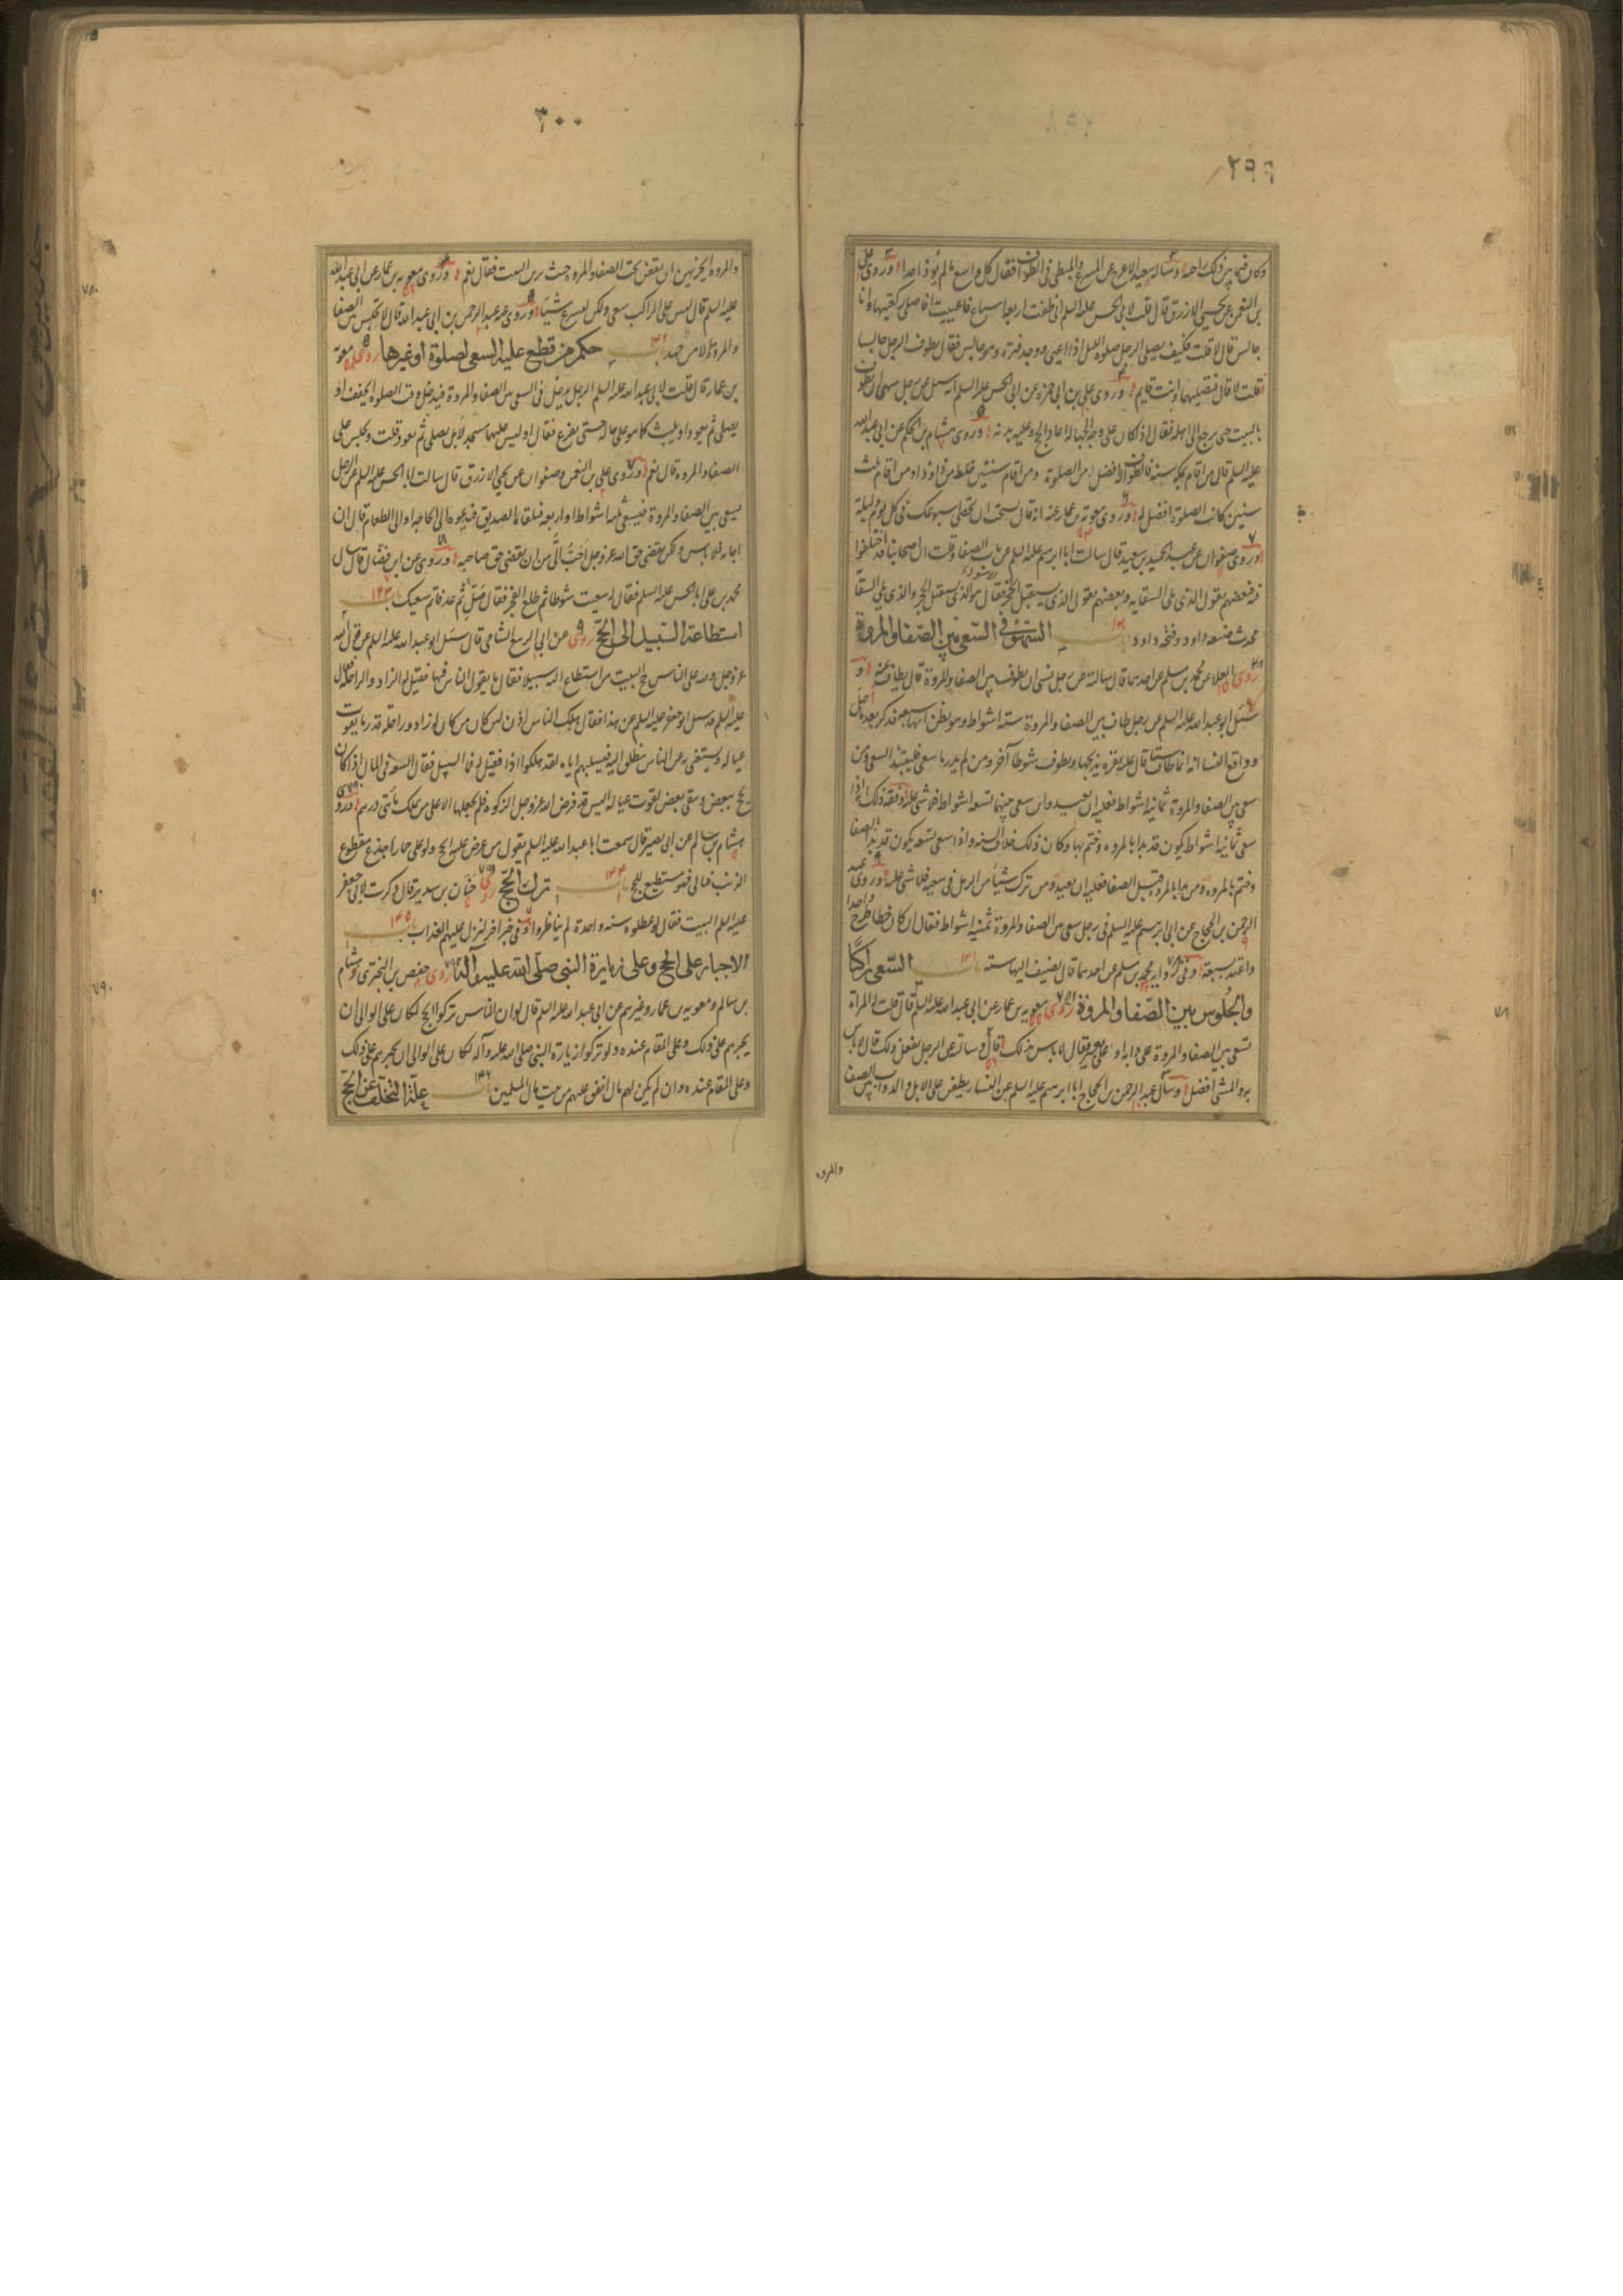 ٢٩٩
وكان فيما بين ذلك راحة وساله سعيد الاعرج عن المسرع والمبطئ في الطواف فقال كل واسع ما لم يؤذ احدا وروى علي
بن النعمن عن يحيى الازرق قال قلت لابي الحسن عليه السلم اني طفت اربعة اسباع فاعييت افاصلي ركعتيها وانا
جالس قال لا قلت فكيف يصلي الرجل صلوة الليل اذا اعيى ووجد فترة وهو جالس فقال يطوف الرجل جالسا
فقلت لا قال فتصليهما وانت قايم وروى علي بن ابي حمزة عن ابي الحسن عليه السلم انه سئل عن رجل سها ان يطوف
بالبيت حتى يرجع الى اهله فقال اذا كان على وجه الجهالة اعاد الحج وعليه بدنة وروى هشام بن الحكم عن ابي عبدالله
عليه السلم قال من اقام بمكة سنة فالطواف له افضل من الصلوة ومن اقام سنتين خلط من ذا وذا ومن اقام ثلث
سنين كانت الصلوة افضل له وروى معوية بن عمار عنه انه قال يستحب ان تحصي اسبوعك في كل يوم وليلة
وروى صفوان عن عبد الحميد بن سعيد قال سالت ابا ابرهيم عليه السلم عن باب الصفا وقلت ان اصحابنا قد اختلفوا
فيه فبعضهم يقول الذي يلي السقاية وبعضهم يقول الذي يستقبل الحجر فقال هو الذي يستقبل الحجر والذي يلي السقاية
محدث صنعه داود وفتحه داود باب السهو في السعي بين الصفا والمروة
روى العلا عن محمد بن مسلم عن احدهما قال سالته عن رجل نسي ان يطوف بين الصفا والمروة قال يطاف عنه و
سئل ابو عبدالله عليه السلم عن رجل طاف بين الصفا والمروة ستة اشواط وهو يظن انها سبعة فذكر بعد ما احل
وواقع النسا انه انما طاف ستة قال عليه بقرة يذبحها ويطوف شوطا آخر ومن لم يدر ما سعى فليبتدئ السعي ومن
سعى بين الصفا والمروة ثمانية اشواط فعليه ان يعيد وان سعى بينهما تسعة اشواط فلا شي عليه وفقه ذلك انه اذا
سعى ثمانية اشواط يكون قد بدا بالمروة وختم بها وكان ذلك خلاف السنة واذا سعى تسعة يكون قد بدا بالصفا
وختم بالمروة ومن بدا بالمروة قبل الصفا فعليه ان يعيد ومن ترك شيئا من الرمل في سعيه فلا شي عليه وروى عبد
الرحمن بن الحجاج عن ابي ابرهيم عليه السلم في رجل سعى بين الصفا والمروة ثمنية اشواط فقال ان كان خطا طرح واحدا
واعتد بسبعة وفي رواية محمد بن مسلم عن احدهما قال يضيف اليها ستة باب السعي راكبا
والجلوس بين الصفا والمروة روى معوية بن عمار عن ابي عبدالله عليه السلم قال قلت له المراة
تسعى بين الصفا والمروة على دابة او على بعير فقال لا باس بذلك قال وسالته عن الرجل يفعل ذلك قال لا باس
به والمشي افضل وسال عبد الرحمن بن الحجاج ابا ابرهيم عليه السلم عن النسا يطفن على الابل والدواب بين الصفا
والمروة
٣٠٠
والمروة ايجزيهن ان يقفن تحت الصفا والمروة حيث يرين البيت فقال نعم وروى معوية بن عمار عن ابي عبدالله
عليه السلم قال ليس على الراكب سعي ولكن ليسرع شيئا وروى عنه عبد الرحمن بن ابي عبدالله قال لا تجلس بين الصفا
والمروة الا من جهد باب حكم من قطع عليه السعي لصلوة او غيرها روى معوية
بن عمار قال قلت لابي عبدالله عليه السلم الرجل يدخل في السعي بين الصفا والمروة فيدخل وقت الصلوة ايخفف او
يصلي ثم يعود او يلبث كما هو على حاله حتى يفرغ فقال اوليس عليهما مسجد لا بل يصلي ثم يعود قلت ويجلس على
الصفا والمروة قال نعم وروى علي بن النعمن وصفوان عن يحيى الازرق قال سالت ابا الحسن عليه السلم عن الرجل
يسعى بين الصفا والمروة فيسعى ثلثة اشواط او اربعة فيلقاه الصديق فيدعوه الى الحاجة او الى الطعام قال ان
اجابه فلا باس ولكن يقضي حق الله عز وجل احب الي من ان يقضي حق صاحبه وروى عن ابن فضال قال سال
محمد بن علي ابا الحسن عليه السلم فقال له سعيت شوطا ثم طلع الفجر فقال صل ثم عد فاتم سعيك باب ١٣٣
استطاعة السبيل الى الحج روى عن ابي الربيع الشامي قال سئل ابو عبدالله عليه السلم عن قول الله
عز وجل ولله على الناس حج البيت من استطاع اليه سبيلا فقال ما يقول الناس فيها فقيل له الزاد والراحلة قال
عليه السلم قد سئل ابو جعفر عليه السلم عن هذا فقال هلك الناس اذن لئن كان من كان له زاد وراحلة قدر ما يقوت
عياله ويستغني به عن الناس ينطلق اليه فيسلبهم اياه لقد هلكوا اذا فقيل له فما السبيل فقال السعة في المال اذا كان
يحج ببعض ويبقي بعض لقوت عياله اليس قد فرض الله عز وجل الزكوة فلم يجعلها الا على من يملك مأتى درهم وروى
هشام بن سالم عن ابي بصير قال سمعت ابا عبدالله عليه السلم يقول من عرض عليه الحج ولو على حمار اجدع مقطوع
الذنب فابى فهو مستطيع للحج باب ١٣٤ ترك الحج روى حنان بن سدير قال ذكرت لابي جعفر
عليه السلم البيت فقال لو عطلوه سنة واحدة لم يناظروا وفي خبر اخر لنزل عليهم العذاب باب ١٣٥
الاجبار على الحج وعلى زيارة النبي صلى الله عليه وآله روى حفص بن البختري وهشام
بن سالم ومعوية بن عمار وغيرهم عن ابي عبدالله عليه السلم قال لو ان الناس تركوا الحج لكان على الوالي ان
يجبرهم على ذلك وعلى المقام عنده ولو تركوا زيارة النبي صلى الله عليه وآله لكان على الوالي ان يجبرهم على ذلك
وعلى المقام عنده وان لم يكن لهم مال انفق عليهم من بيت مال المسلمين باب ١٣٦ علة التخلف عن الحج